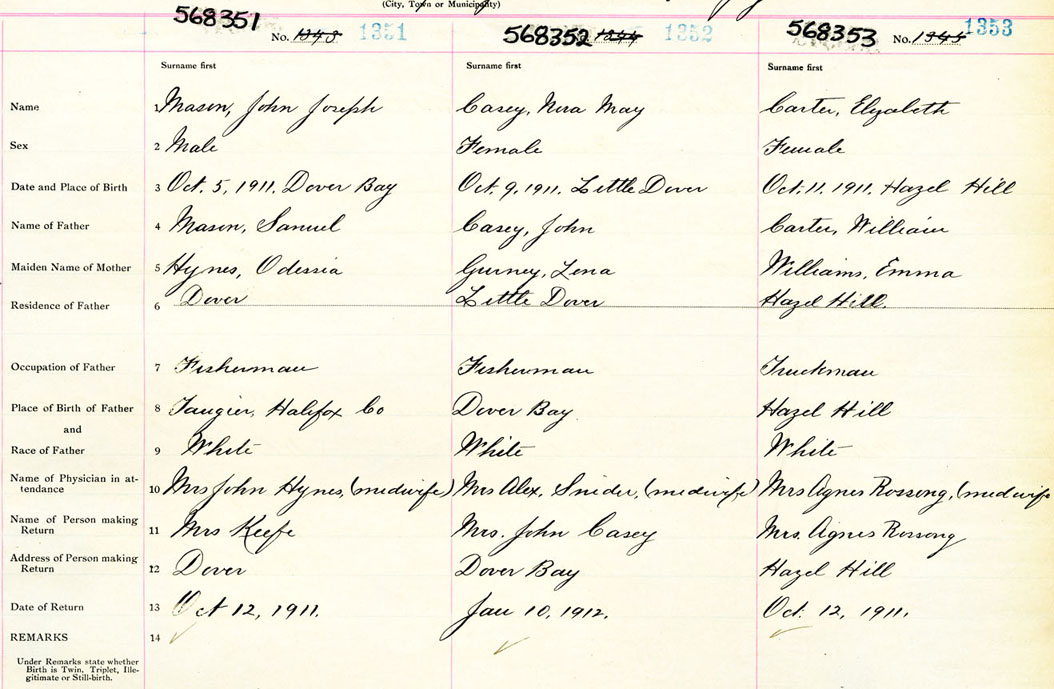 (City, Town or Municipality)
568351 No. 1343 1351 568352 1344 1352 568353 No. 1353
Surname first Surname first Surname first
Name 1 Mason, John Joseph Casey, Nora May Carter, Elizabeth
Sex 2 Male Female Female
Date and Place of Birth 3 Oct. 5, 1911. Dover Bay Oct. 9, 1911. Little Dover Oct. 11. 1911. Hazel Hill
Name of Father 4 Mason, Samuel Casey, John Carter, William
Maiden Name of Mother 5 Hynes, Odessia Gurney, Lena Williams, Emma
Residence of Father 6 Dover Little Dover Hazel Hill.
Occupation of Father 7 Fisherman Fisherman Truckman
Place of Birth of Father 8 Tangier, Halifax Co Dover Bay Hazel Hill
and
Race of Father 9 White White White
Name of Physician in at-
tendance 10 Mrs John Hynes, (midwife) Mrs Alex, Snider, (midwife) Mrs Agnes Rossong, (midwife
Name of Person making
Return 11 Mrs Keefe Mrs. John Casey Mrs. Agnes Rossong
Address of Person making
Return 12 Dover Dover Bay Hazel Hill
Date of Return 13 Oct 12, 1911. Jan 10, 1912. Oct. 12, 1911.
REMARKS 14
Under Remarks state whether
Birth is Twin, Triplet, Ille-
gitimate or Still-birth.